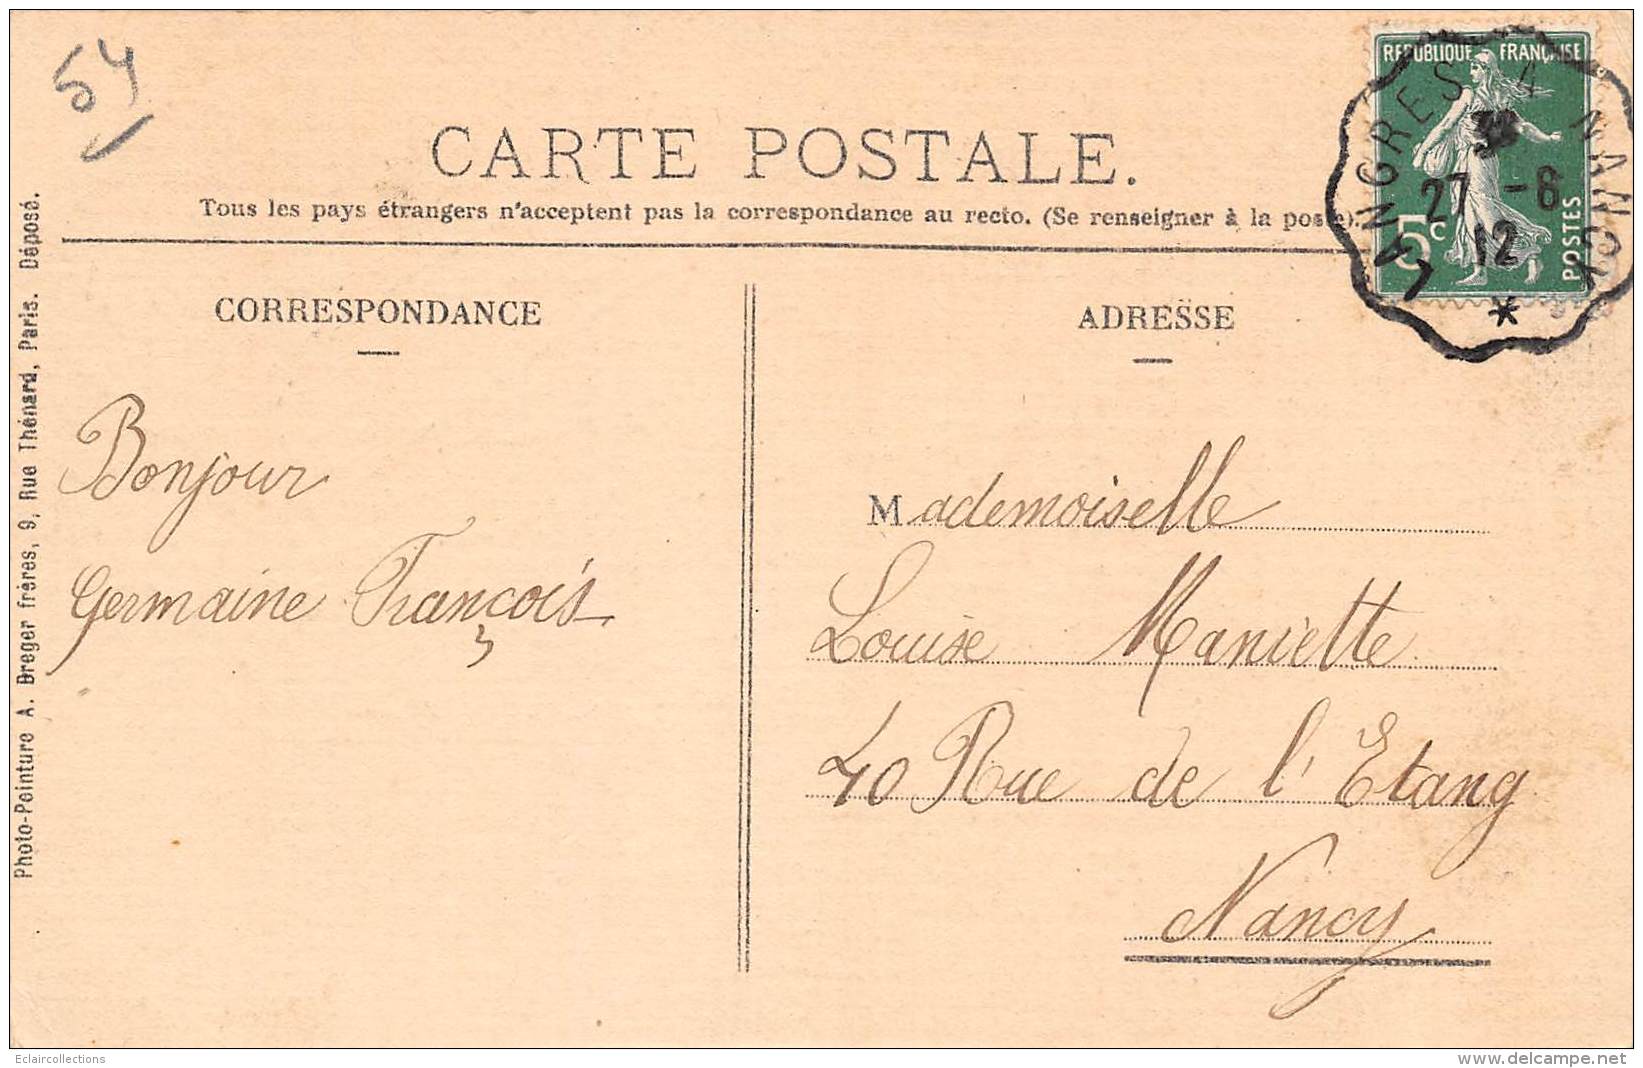 54
CARTE POSTALE.
Tous les pays étrangers n'acceptent pas la correspondance au recto. (Se renseigner à la poste).
REPUBLIQUE FRANÇAISE
5c
POSTES
LANGRES A NANCY
27 -6
12
CORRESPONDANCE
Bonjour
Germaine François
ADRESSE
Mademoiselle
Louise Maniette
40 Rue de l'Etang
Nancy
Photo-Peinture A. Breger frères, 9, Rue Thénard, Paris. Déposé.
Eclaircollections
www.delcampe.net